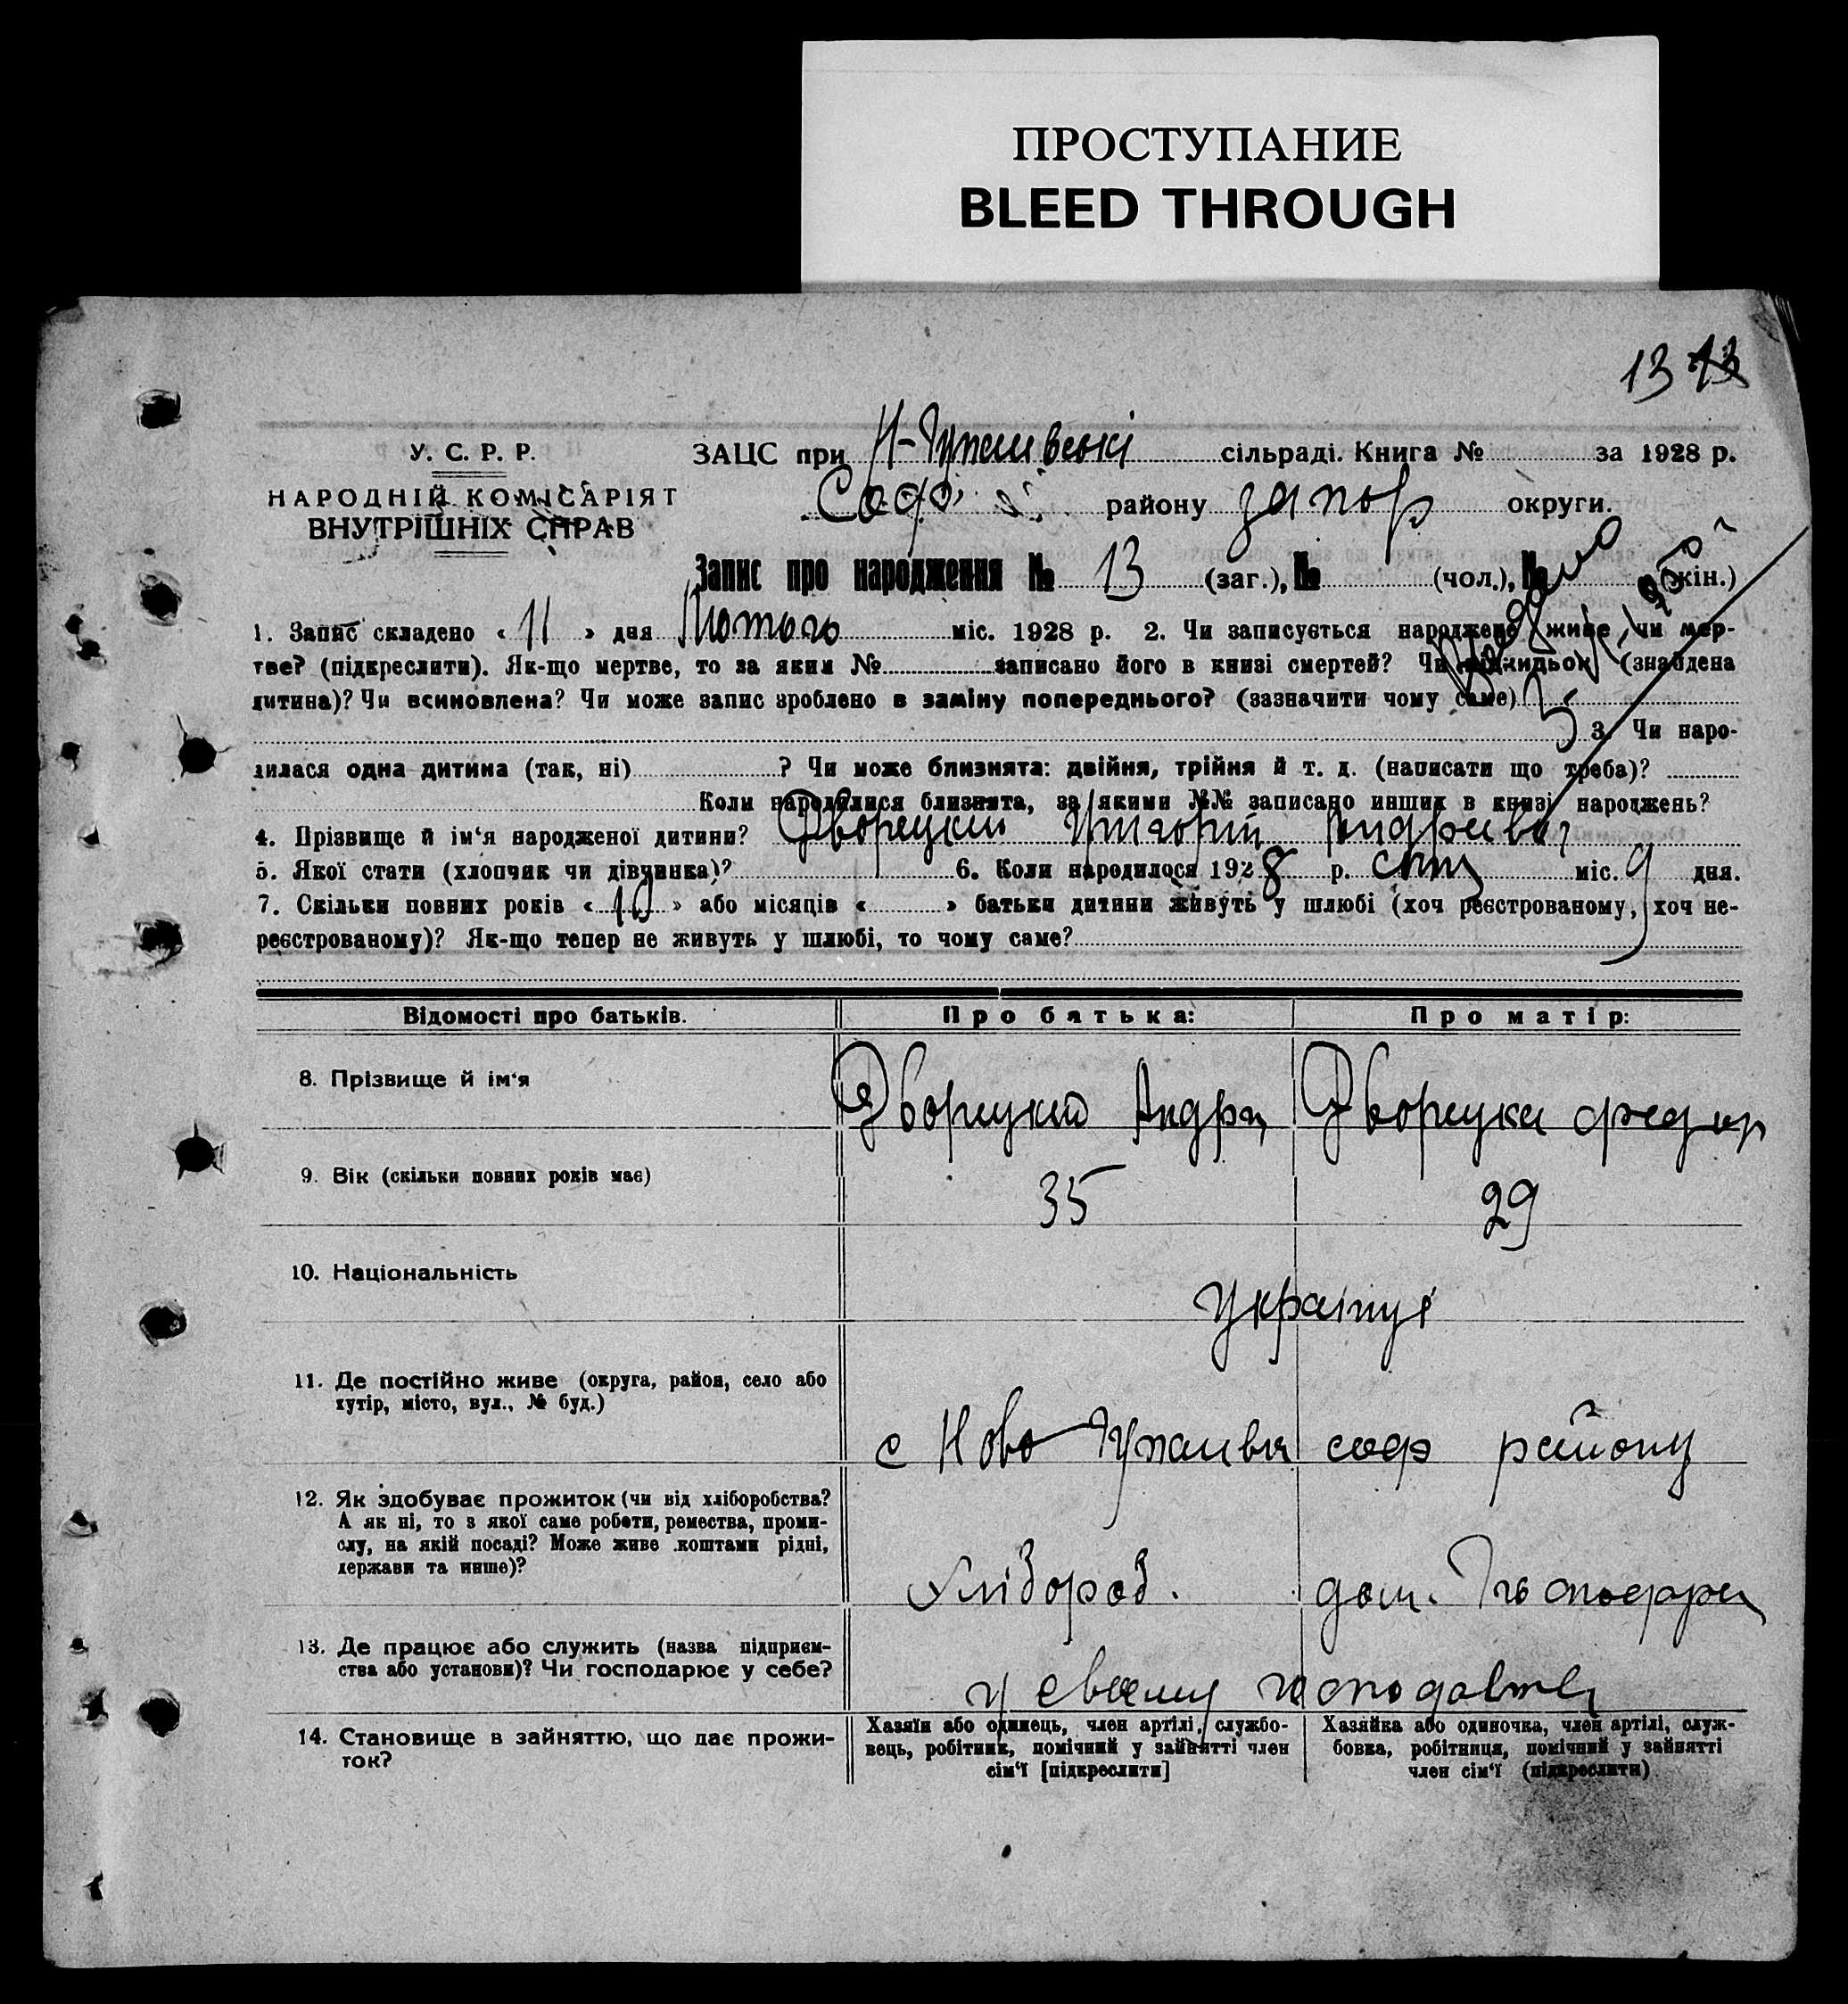 ПРОСТУПАНИЕ
BLEED THROUGH
13 13
У. С. Р. Р.
НАРОДНІЙ КОМІСАРІЯТ
ВНУТРІШНІХ СПРАВ
ЗАЦС при сільраді. Книга № за 1928 р.
Соф. району запор округи.
Запис про народження № 13 (заг.), № (чол.), № (жін.)
1. Запис складено « 11 » дня Лютого міс. 1928 р. 2. Чи записується народжене живе, чи мер-
тве? (підкреслити). Як-що мертве, то за яким № записано його в книзі смертей? Чи підкидьок (знайдена
дитина)? Чи всиновлена? Чи може запис зроблено в заміну попереднього? (зазначити чому саме)
3. Чи наро-
дилася одна дитина (так, ні) ? Чи може близнята: двійня, трійня й т. д. (написати що треба)?
Коли народилися близнята, за якими №№ записано инших в книзі народжень?
4. Прізвище й ім'я народженої дитини? Дворецкий Григорий Андреев
5. Якої стати (хлопчик чи дівчинка)? 6. Коли народилося 1928 р. січ міс. 9 дня.
7. Скільки повних років « 10 » або місяців « » батьки дитини живуть у шлюбі (хоч реєстрованому, хоч не-
реєстрованому)? Як-що тепер не живуть у шлюбі, то чому саме?
Відомості про батьків. Про батька: Про матір:
8. Прізвище й ім'я Дворецкий Андрей Дворецка
9. Вік (скільки повних років має) 35 29
10. Національність українці
11. Де постійно живе (округа, район, село або
хутір, місто, вул., № буд.)
с Ново соф району
12. Як здобуває прожиток (чи від хліборобства?
А як ні, то з якої саме роботи, ремества, проми-
слу, на якій посаді? Може живе коштами рідні,
держави та инше)?
Хлібороб. дом.
13. Де працює або служить (назва підприєм-
ства або установи)? Чи господарює у себе?
у своему
14. Становище в зайняттю, що дає прожи-
ток?
Хазяїн або одинець, член артілі, службо-
вець, робітник, помічний у зайнятті член
сім'ї [підкреслити]
Хазяйка або одиночка, член артілі, служ-
бовка, робітниця, помічний у зайнятті
член сім'ї (підкреслити)